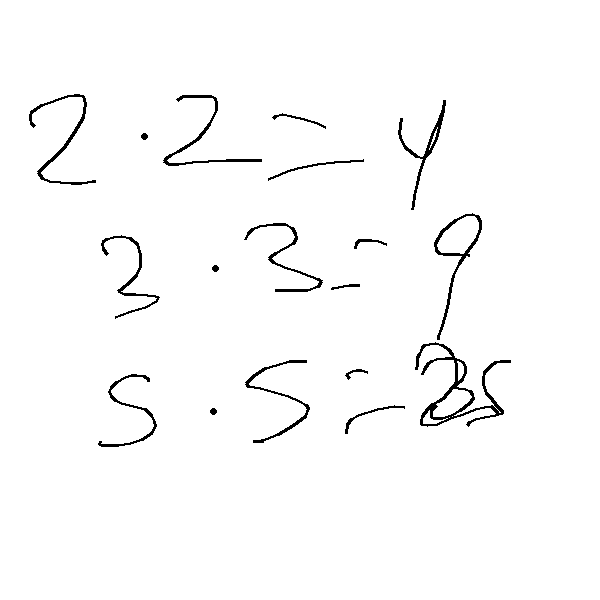 2 · 2 = 4
3 · 3 = 9
5 · 5 =